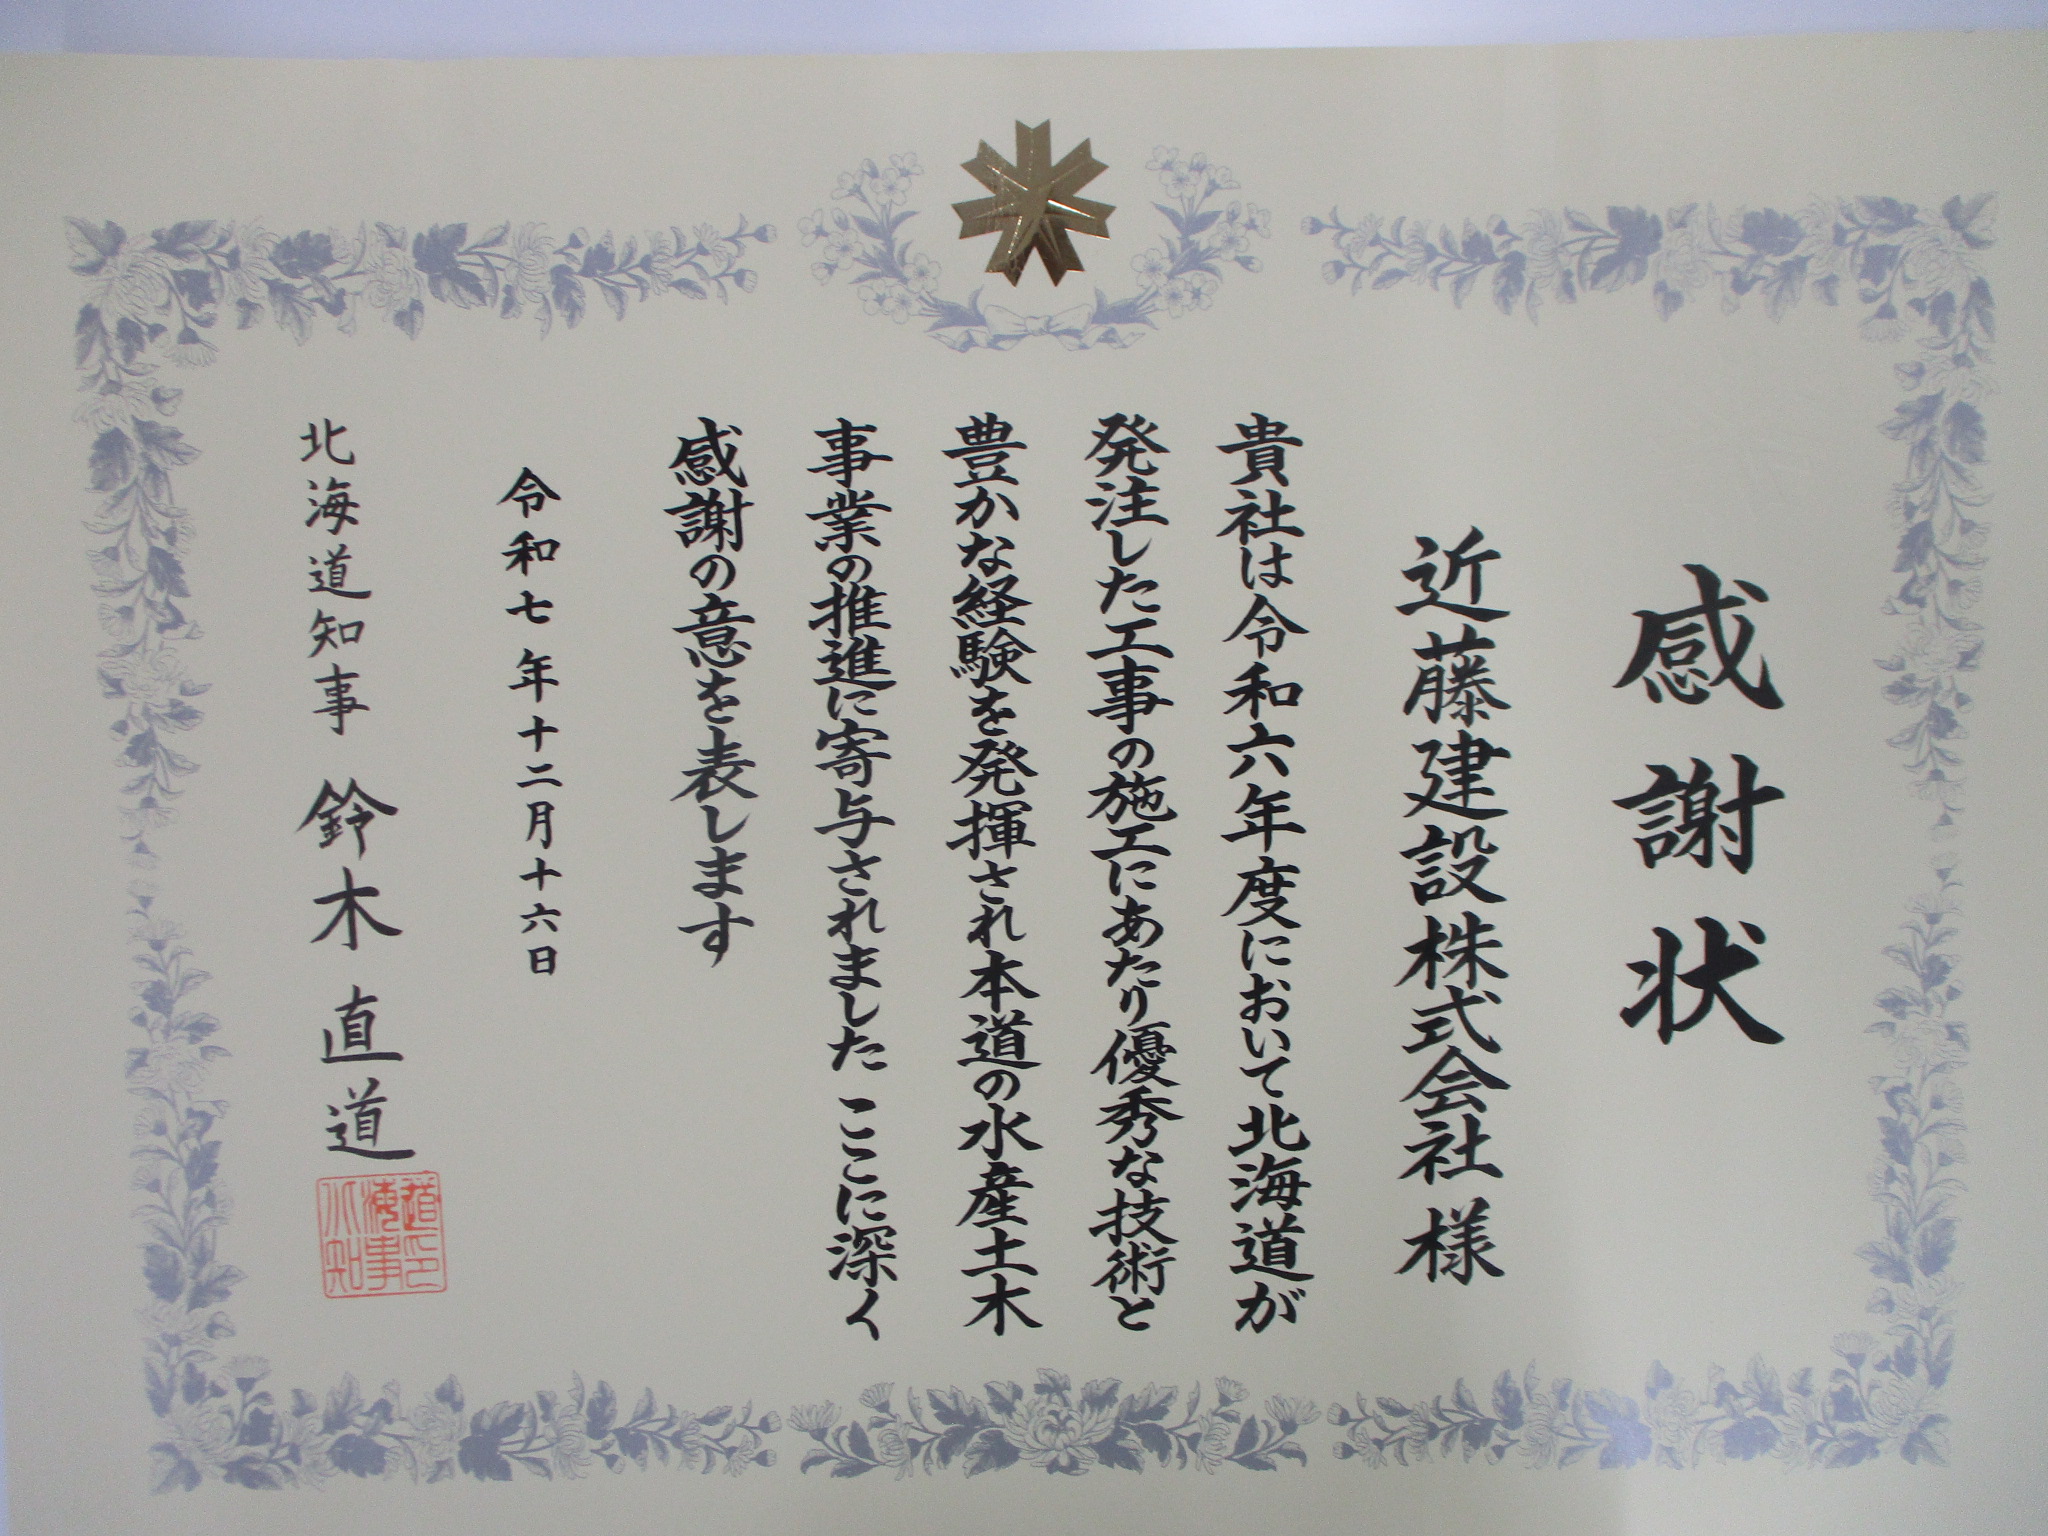 感謝状
近藤建設株式会社 様
貴社は令和六年度において北海道が
発注した工事の施工にあたり優秀な技術と
豊かな経験を発揮され本道の水産土木
事業の推進に寄与されました ここに深く
感謝の意を表します
令和七年十二月十六日
北海道知事 鈴木直道
道印
海事
北知